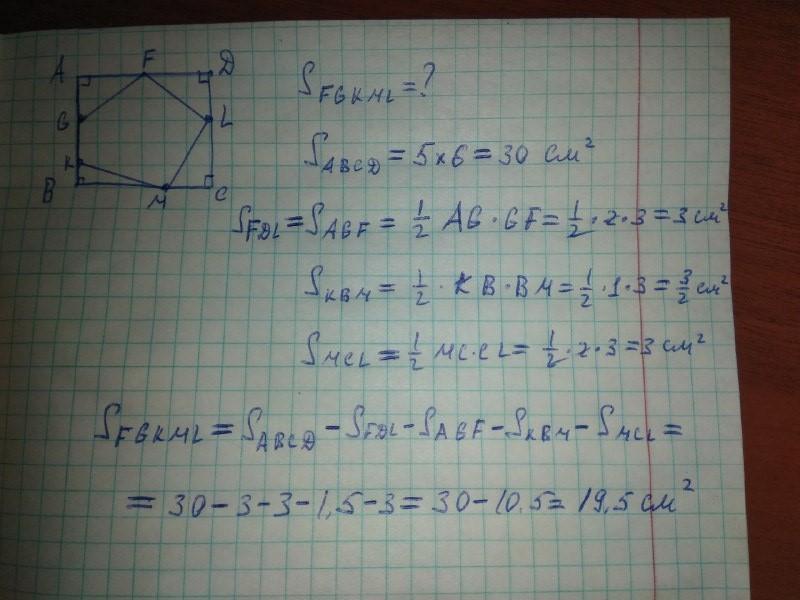 A F D
G L
K
B M C
S_FGKML = ?
S_ABCD = 5×6 = 30 см²
S_FDL = S_AGF = 1/2 AG · GF = 1/2 · 2 · 3 = 3 см²
S_KBM = 1/2 · KB · BM = 1/2 · 1 · 3 = 3/2 см²
S_MCL = 1/2 MC · CL = 1/2 · 2 · 3 = 3 см²
S_FGKML = S_ABCD − S_FDL − S_AGF − S_KBM − S_MCL =
= 30 − 3 − 3 − 1,5 − 3 = 30 − 10.5 = 19,5 см²